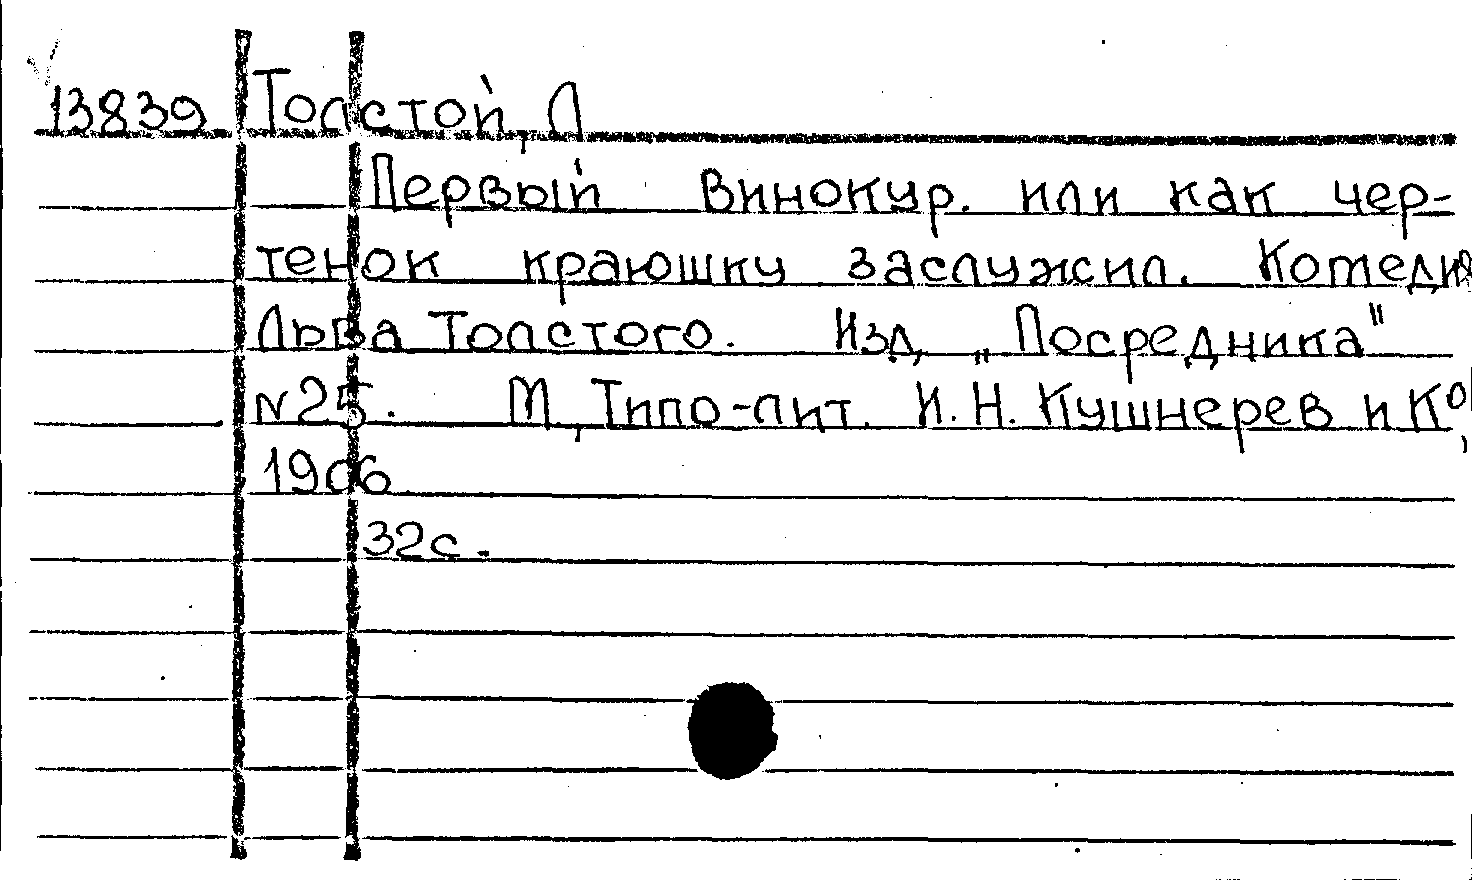 13839 Толстой, Л
Первый винокур. или как чер-
тенок краюшку заслужил. Комедия
Льва Толстого. Изд. „Посредника"
N25. М., Типо-лит. И.Н. Кушнерев и К⁰,
1906
32с.